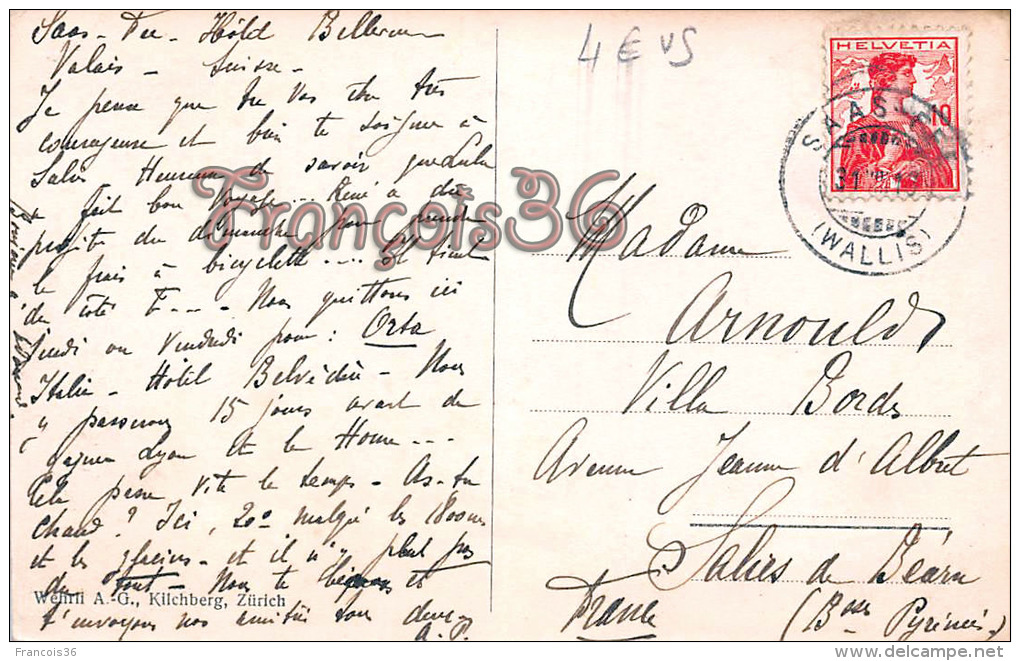 Saas-Fee - Hôtel Bellevue
Valais - Suisse -
Je pense que tu vas être très
courageuse et bien te soigner à
Salies Heureux de savoir que Lulu
a fait bon voyage... René a dû
profiter du dimanche pour prendre
le frais à bicyclette .... et tient
de côté F---- Nous quittons ici
Jeudi ou Vendredi pour : Orta
Italie - Hôtel Belvédère - Nous
y passerons 15 jours avant de
gagner Lyon et le Home ---
Cela passe vite le temps - As-tu
chaud ? Ici, 20° malgré les 1800m
et les glaciers - et il n'y pleut pas
du tout - Nous te et
t'envoyons nos amitiés tous deux -
A. P.
Bonjour à
Wehrli A.-G., Kilchberg, Zürich
4 € VS
HELVETIA
10
SAAS-FEE
(WALLIS)
Madame
Arnould
Villa Bordes
Avenue Jeanne d'Albret
Salies de Béarn
France
(Bses Pyrénées)
François36
© François36
delcampe.net